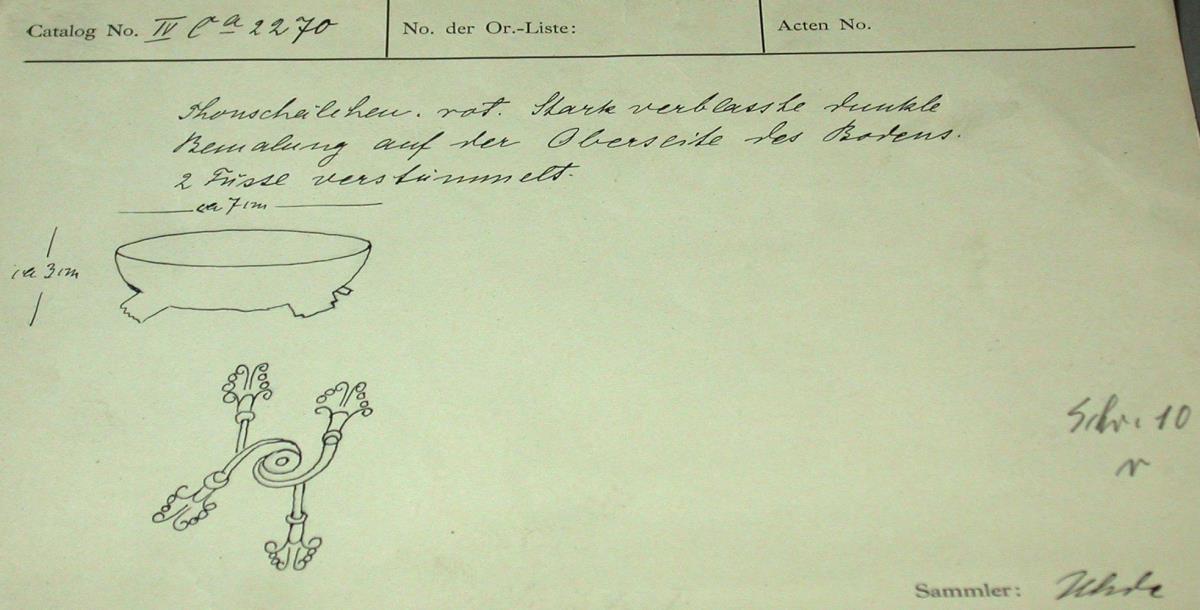 Catalog No. IV Ca 2270 No. der Or.-Liste: Acten No.
Thonschälchen. rot. Stark verblasste dunkle
Bemalung auf der Oberseite des Bodens.
2 Füsse verstümmelt.
ca 7 cm
ca 3 cm
Schr. 10
Sammler: Uhde